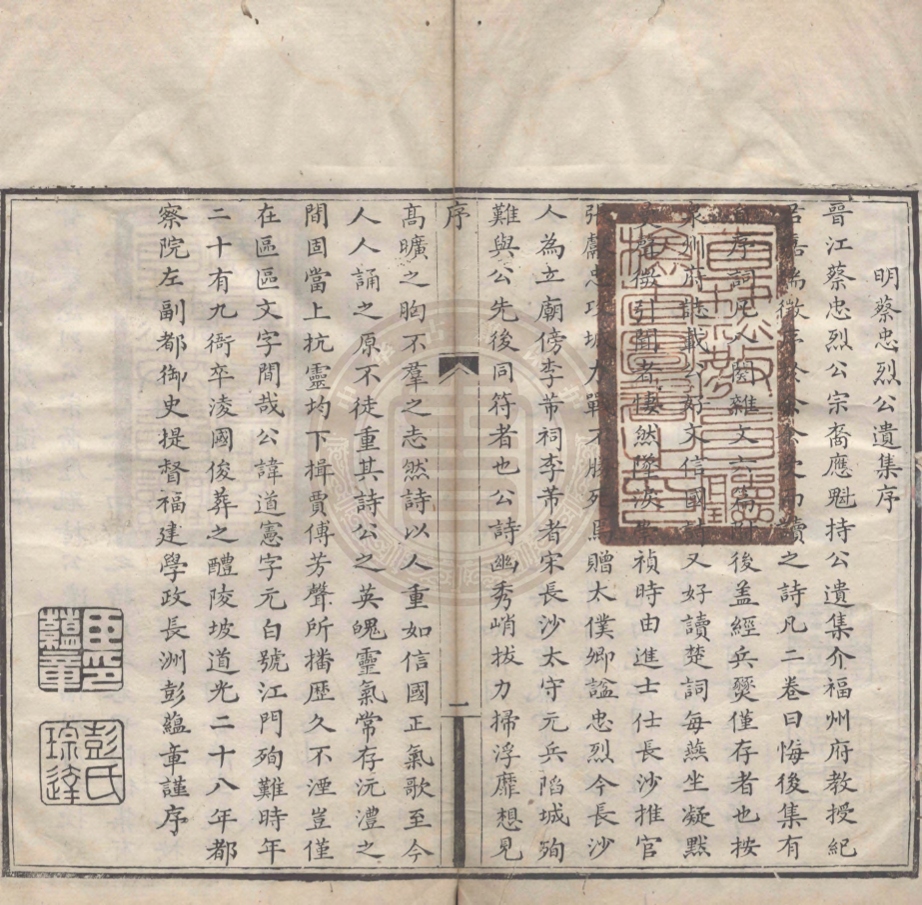 明蔡忠烈公遺集序
晉江蔡忠烈公宗裔應魁持公遺集介福州府教授紀
君 徵序 余 讀之詩凡二卷曰悔後集有
序詞 雜文六 後盖經兵燹僅存者也按
泉州府誌載公好文信國 又好讀楚詞每燕坐凝默
徵引 者悽然墜淚 禎時由進士仕長沙推官
張獻忠攻城力戰不勝死 贈太僕卿諡忠烈今長沙
人為立廟傍李芾祠李芾者宋長沙太守元兵陷城殉
難與公先後同符者也公詩幽秀峭拔力掃浮靡想見
序
一
高曠之胸不羣之志然詩以人重如信國正氣歌至今
人人誦之原不徒重其詩公之英魄靈氣常存沅澧之
間固當上抗靈均下揖賈傅芳聲所播歷久不湮豈僅
在區區文字間哉公諱道憲字元白號江門殉難時年
二十有九衙卒淩國俊葬之醴陵坡道光二十八年都
察院左副都御史提督福建學政長洲彭蘊章謹序
蘊章
彭氏
琮達